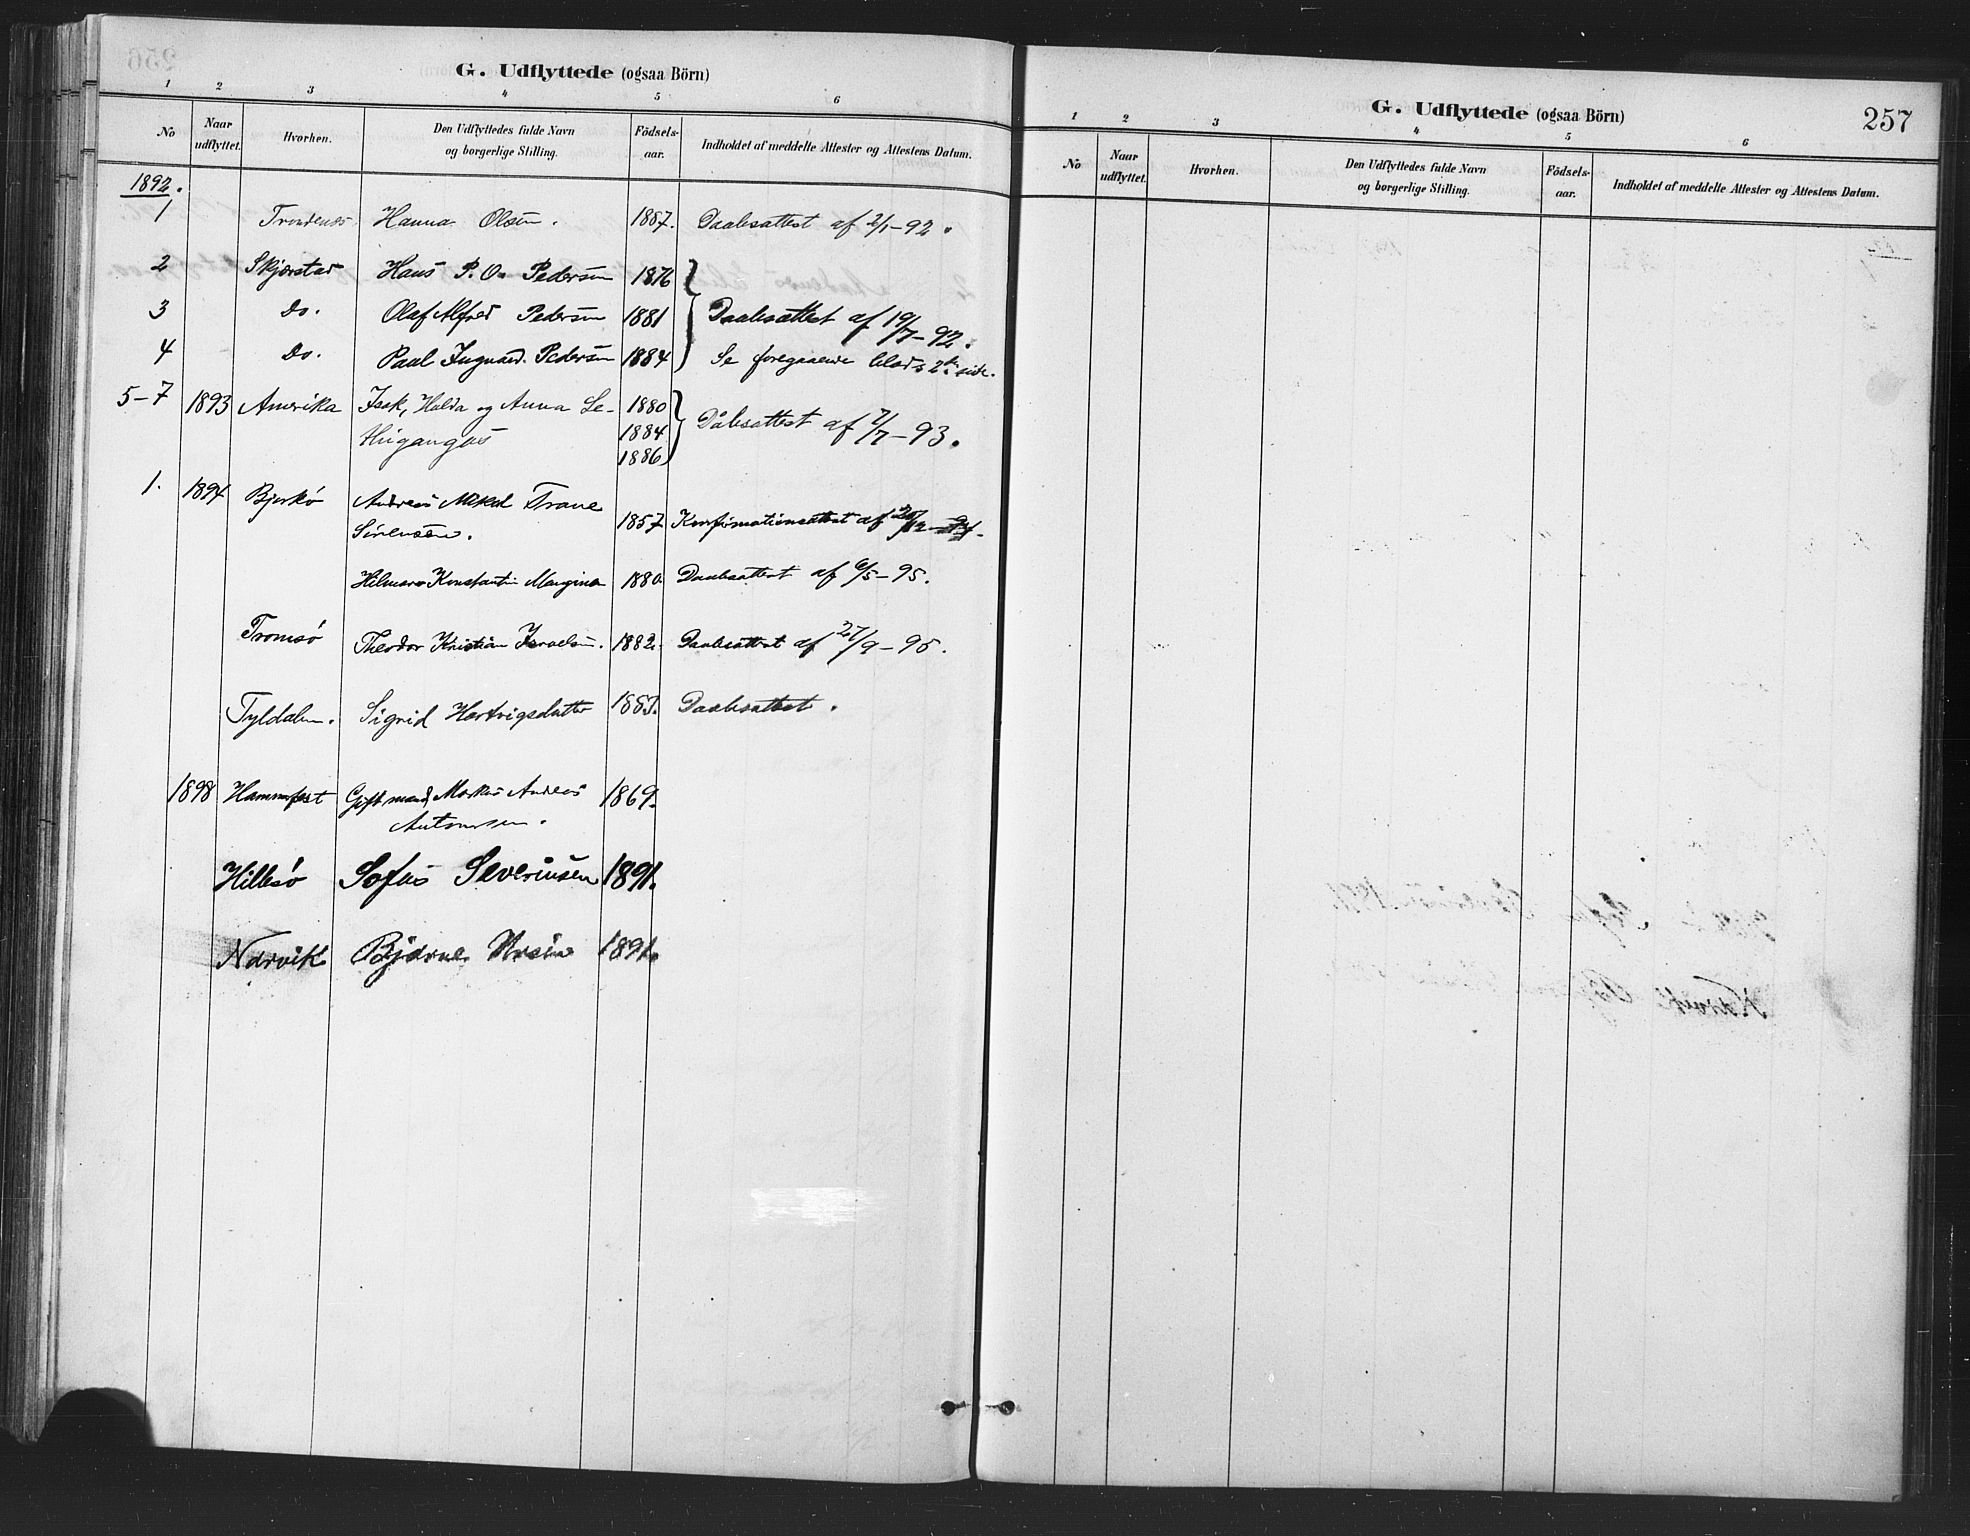 G. Udflyttede (ogsaa Börn)
1 2 3 4 5 6
No Naar udflyttet. Hvorhen. Den Udflyttedes fulde Navn og borgerlige Stilling. Födsels-aar. Indholdet af meddelte Attester og Attestens Datum.
1892.
1 Trondenæs Hanna Olsen. 1887. Daabsattest af 2/1-92.
2 Skjærstad Hans P. O. Pedersen 1876
3 Do. Olaf Alfred Pedersen 1881 Daabsattest af 19/7-92.
4 Do. Paal Ingvard Pedersen 1884 Se foregaaende blads 2den side.
5-7 1893 Amerika Isak, Hulda og Anna Le- 1880
thigangas 1884 Dåbsattest af 7/7-93.
1886
1. 1894 Bjarkö Andreas Mikal Trane
Sörensen. 1857 Konfirmationsattest af
Hilmar Konstantin 1880. Daabsattest af 6/5-95.
Tromsö Theodor Kristian Israelsen. 1882. Daabsattest af 27/9-95.
Tyldalen. Sigrid Hartvigsdatter 1883. Daabsattest.
1898 Hammerfest Gift mand, Markus Andreas 1869.
Antonsen.
Hillesö Sofus Severinsen 1891.
Narvik Bjarne 1891.
G. Udflyttede (ogsaa Börn) 257
1 2 3 4 5 6
No Naar udflyttet. Hvorhen. Den Udflyttedes fulde Navn og borgerlige Stilling. Födsels-aar. Indholdet af meddelte Attester og Attestens Datum.